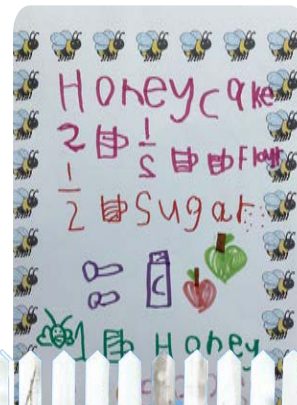 Honeycake
2 1/2 Flour
1/2 Sugar
C
1 Honey